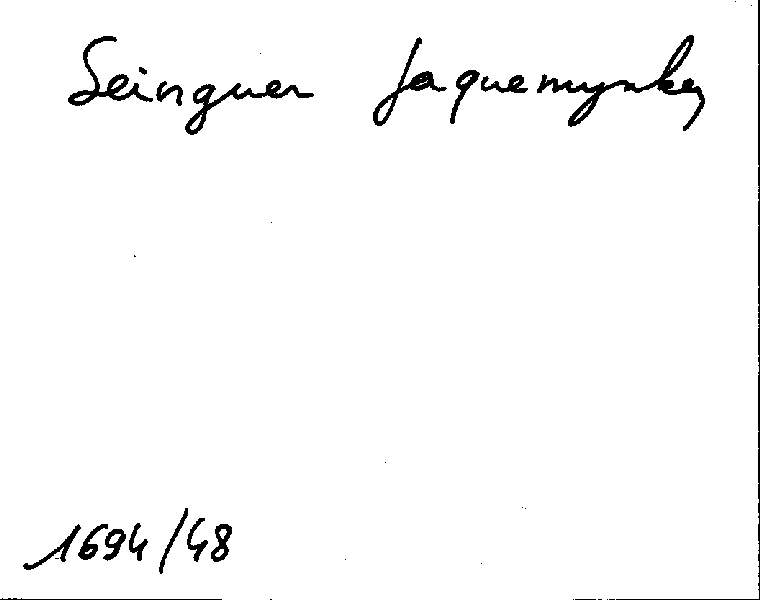 Seinguer Jaquemynkey
1694/48